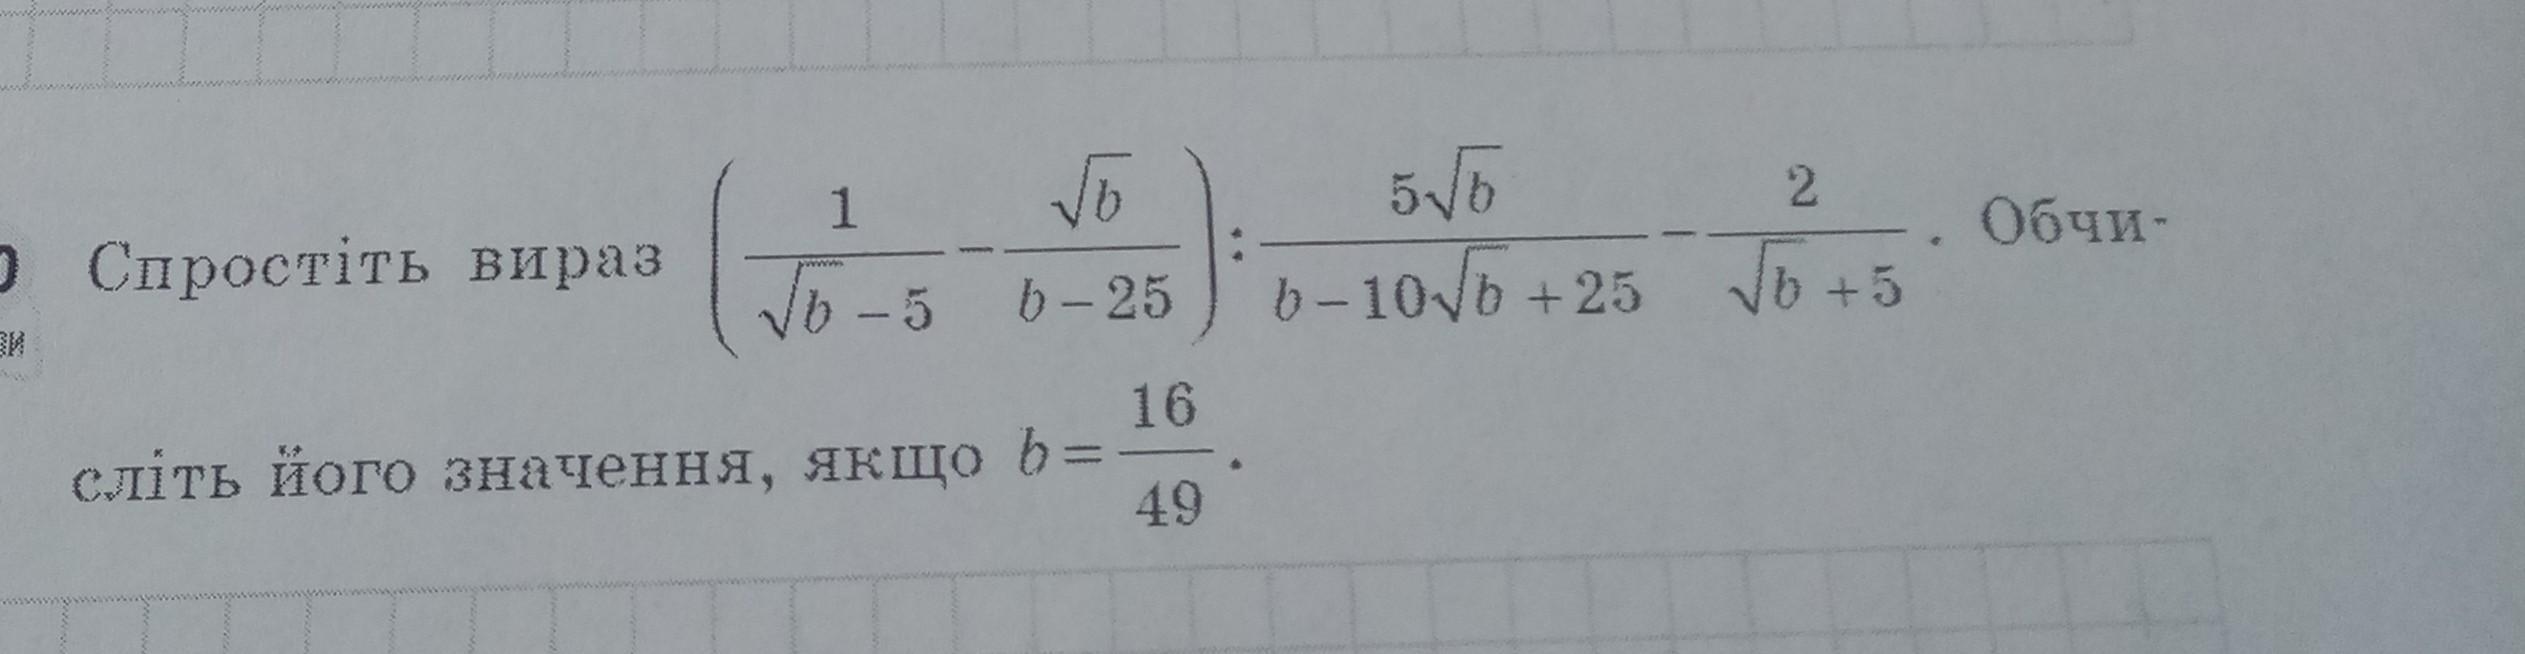 Спростіть вираз (1/(√b − 5) − √b/(b − 25)) : 5√b/(b − 10√b + 25) − 2/(√b + 5). Обчи-
сліть його значення, якщо b = 16/49.